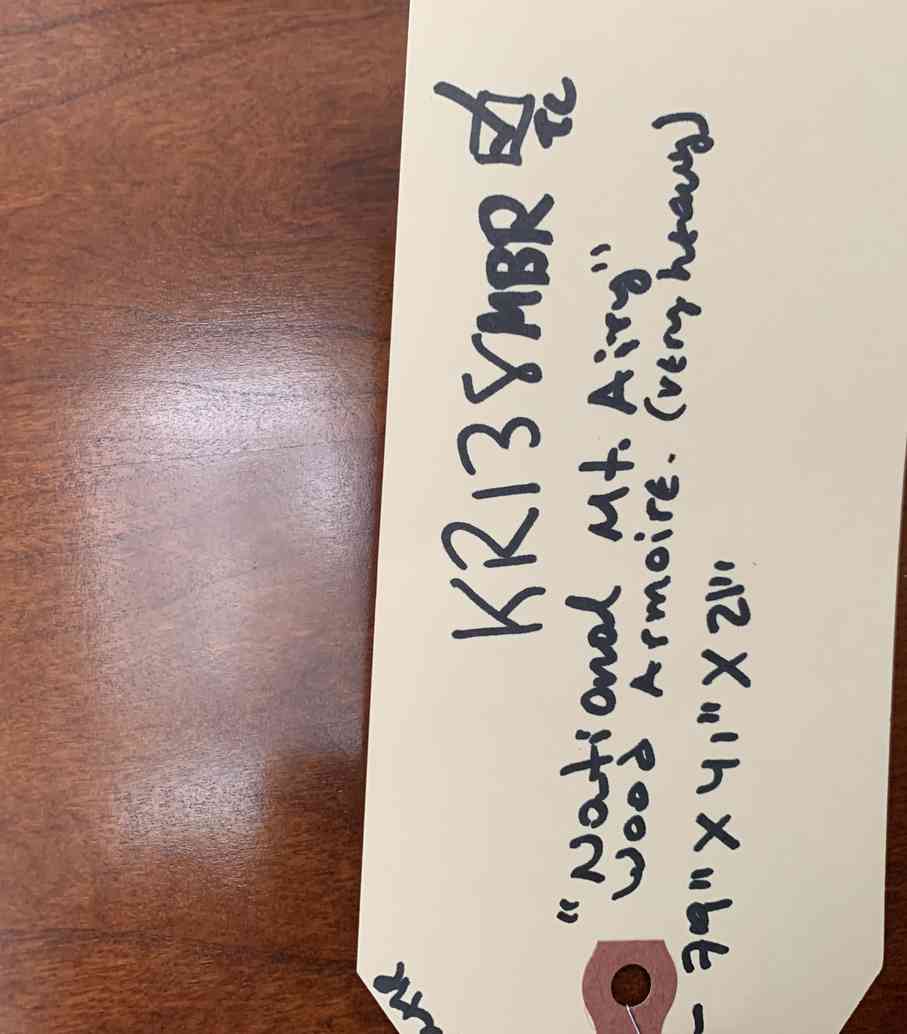 KR138MBR ☑
IC
"National Mt. Airy"
wood Armoire. (very heavy)
- 79" X 41" X 21"